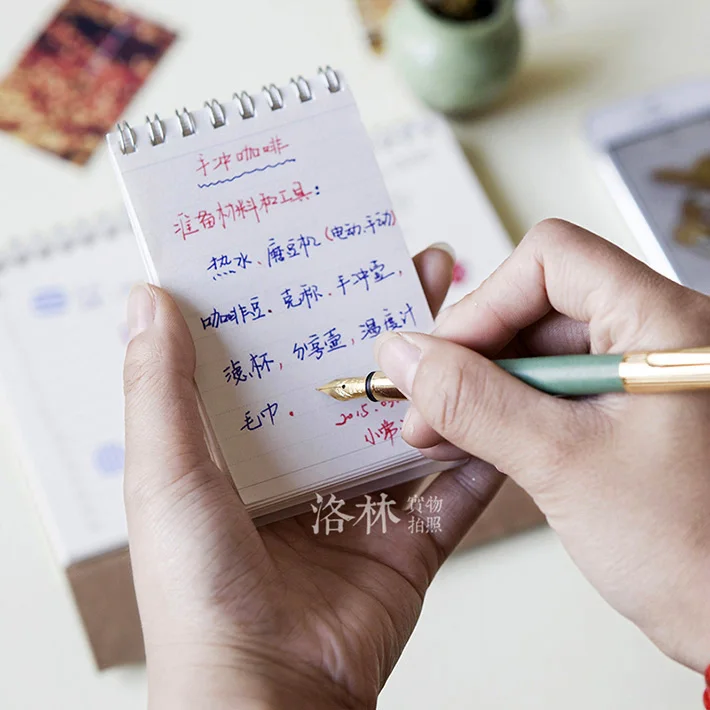 手冲咖啡
准备材料和工具：
热水、磨豆机（电动、手动）
咖啡豆、克称、手冲壶、
滤杯，分享壶，温度计
毛巾。
2015.03
小常
洛林 實物拍照